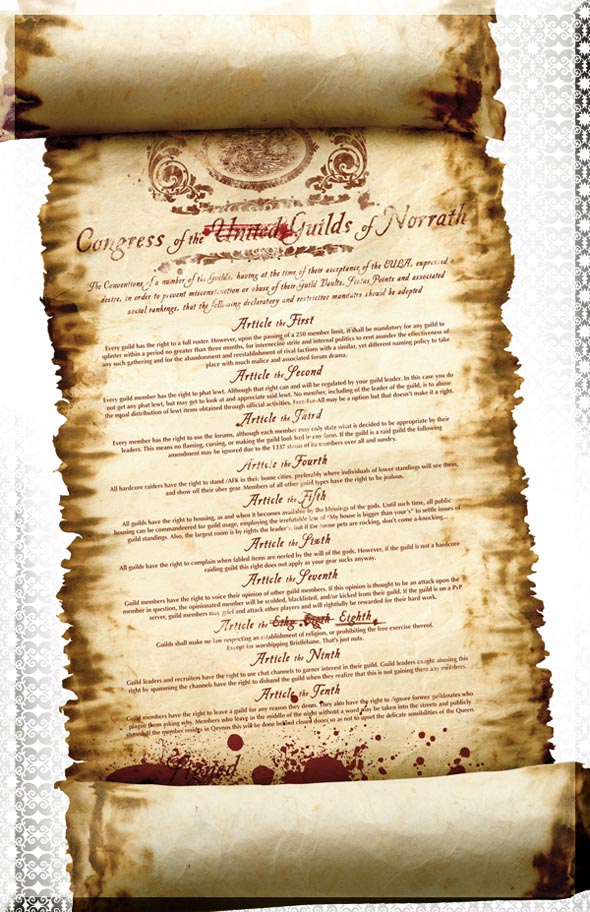 Congress of the United Guilds of Norrath
The Conventions of a number of the Guilds, having at the time of their acceptance of the EULA, expressed a
desire, in order to prevent misconstruction or abuse of their Guild Vaults, Status Points and associated
social rankings, that the following declaratory and restrictive mandates should be adopted
Article the First
Every guild has the right to a full roster. However, upon the passing of a 250 member limit, if shall be mandatory for any guild to
splinter within a period no greater than three months, for internecine strife and internal politics to rent asunder the effectiveness of
any such gathering and for the abandonment and reestablishment of rival factions with a similar, yet different naming policy to take
place with much malice and associated forum drama.
Article the Second
Every guild member has the right to phat lewt. Although that right can and will be regulated by your guild leader. In this case you do
not get any phat lewt, but may get to look at and appreciate said lewt. No member, including of the leader of the guild, is to abuse
the equal distribution of lewt items obtained through official activities. Free-For-All may be a option but that doesn't make it right.
Article the Third
Every member has the right to use the forums, although each member may only state what is decided to be appropriate by their
leaders. This means no flaming, cursing, or making the guild look bad in any form. If the guild is a raid guild the following
amendment may be ignored due to the 1337 status of its members over all and sundry.
Article the Fourth
All hardcore raiders have the right to stand /AFK in their home cities, preferably where individuals of lower standings will see them,
and show off their uber gear. Members of all other guild types have the right to be jealous.
Article the Fifth
All guilds have the right to housing, as and when it becomes available by the blessings of the gods. Until such time, all public
housing can be commandeered for guild usage, employing the irrefutable law of "My house is bigger than your's" to settle issues of
guild standings. Also, the largest room is by rights the leader's, but if the house pets are rocking, don't come a-knocking...
Article the Sixth
All guilds have the right to complain when fabled items are nerfed by the will of the gods. However, if the guild is not a hardcore
raiding guild this right does not apply as your gear sucks anyway.
Article the Seventh
Guild members have the right to voice their opinion of other guild members. If this opinion is thought to be an attack upon the
member in question, the opinionated member will be scolded, blacklisted, and/or kicked from their guild. If the guild is on a PvP
server, guild members may grief and attack other players and will rightfully be rewarded for their hard work.
Article the Eithg Eigth Eighth
Guilds shall make no law respecting an establishment of religion, or prohibiting the free exercise thereof.
Except for worshipping Bristlebane. That's just nuts.
Article the Ninth
Guild leaders and recruiters have the right to use chat channels to garner interest in their guild. Guild leaders caught abusing this
right by spamming the channels have the right to disband the guild when they realize that this is not gaining them any members.
Article the Tenth
Guild members have the right to leave a guild for any reason they deem. They also have the right to /ignore former guildmates who
plague them asking why. Members who leave in the middle of the night without a word may be taken into the streets and publicly
if the member resides in Qeynos this will be done behind closed doors so as not to upset the delicate sensibilities of the Queen.
Signed